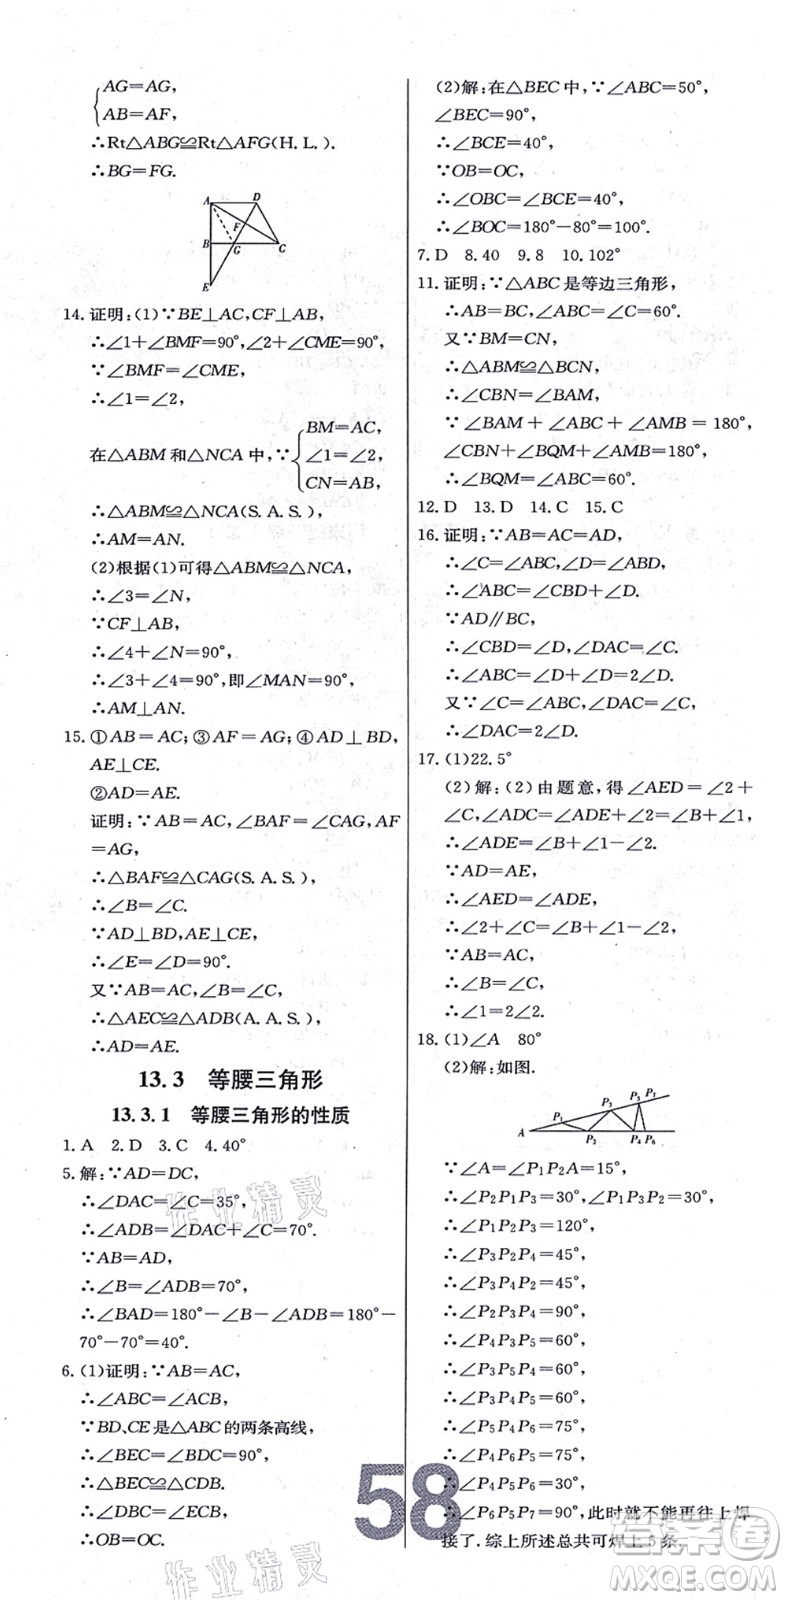 AG=AG,
AB=AF,
∴Rt△ABG≌Rt△AFG(H.L.).
∴BG=FG.
A D
F
B G C
E
14.证明:(1)∵BE⊥AC,CF⊥AB,
∴∠1+∠BMF=90°,∠2+∠CME=90°,
∵∠BMF=∠CME,
∴∠1=∠2,
BM=AC,
在△ABM和△NCA中,∵ ∠1=∠2,
CN=AB,
∴△ABM≌△NCA(S.A.S.),
∴AM=AN.
(2)根据(1)可得△ABM≌△NCA,
∴∠3=∠N,
∵CF⊥AB,
∴∠4+∠N=90°,
∴∠3+∠4=90°,即∠MAN=90°,
∴AM⊥AN.
15.①AB=AC;③AF=AG;④AD⊥BD,
AE⊥CE.
②AD=AE.
证明:∵AB=AC,∠BAF=∠CAG,AF
=AG,
∴△BAF≌△CAG(S.A.S.),
∴∠B=∠C.
∵AD⊥BD,AE⊥CE,
∴∠E=∠D=90°.
又∵AB=AC,∠B=∠C,
∴△AEC≌△ADB(A.A.S.),
∴AD=AE.
13.3 等腰三角形
13.3.1 等腰三角形的性质
1.A 2.D 3.C 4.40°
5.解:∵AD=DC,
∴∠DAC=∠C=35°,
∴∠ADB=∠DAC+∠C=70°.
∵AB=AD,
∴∠B=∠ADB=70°,
∴∠BAD=180°-∠B-∠ADB=180°-
70°-70°=40°.
6.(1)证明:∵AB=AC,
∴∠ABC=∠ACB,
∵BD、CE是△ABC的两条高线,
∴∠BEC=∠BDC=90°,
∴△BEC≌△CDB.
∴∠DBC=∠ECB,
∴OB=OC.
(2)解:在△BEC中,∵∠ABC=50°,
∠BEC=90°,
∴∠BCE=40°,
∵OB=OC,
∴∠OBC=∠BCE=40°,
∴∠BOC=180°-80°=100°.
7.D 8.40 9.8 10.102°
11.证明:∵△ABC是等边三角形,
∴AB=BC,∠ABC=∠C=60°.
又∵BM=CN,
∴△ABM≌△BCN,
∴∠CBN=∠BAM,
∵∠BAM+∠ABC+∠AMB=180°,
∠CBN+∠BQM+∠AMB=180°,
∴∠BQM=∠ABC=60°.
12.D 13.D 14.C 15.C
16.证明:∵AB=AC=AD,
∴∠C=∠ABC,∠D=∠ABD,
∴∠ABC=∠CBD+∠D.
∵AD∥BC,
∴∠CBD=∠D,∠DAC=∠C.
∴∠ABC=∠D+∠D=2∠D.
又∵∠C=∠ABC,∠DAC=∠C,
∴∠DAC=2∠D.
17.(1)22.5°
(2)解:(2)由题意,得∠AED=∠2+
∠C,∠ADC=∠ADE+∠2=∠B+∠1,
∴∠ADE=∠B+∠1-∠2.
∵AD=AE,
∴∠AED=∠ADE,
∴∠2+∠C=∠B+∠1-∠2
∵AB=AC,
∴∠B=∠C,
∴∠1=2∠2.
18.(1)∠A 80°
(2)解:如图.
P1 P3 P5 P7
A P2 P4 P6
∵∠A=∠P1P2A=15°,
∴∠P2P1P3=30°,∠P1P3P2=30°,
∴∠P1P2P3=120°,
∴∠P3P2P4=45°,
∴∠P3P4P2=45°,
∴∠P2P3P4=90°,
∴∠P4P3P5=60°,
∴∠P3P5P4=60°,
∴∠P3P4P5=60°,
∴∠P5P4P6=75°,
∴∠P4P6P5=75°,
∴∠P4P5P6=30°,
∴∠P6P5P7=90°,此时就不能再往上焊
接了.综上所述总共可焊上5条.
58
作业精灵
作业精灵
答案圈
MXQE.COM